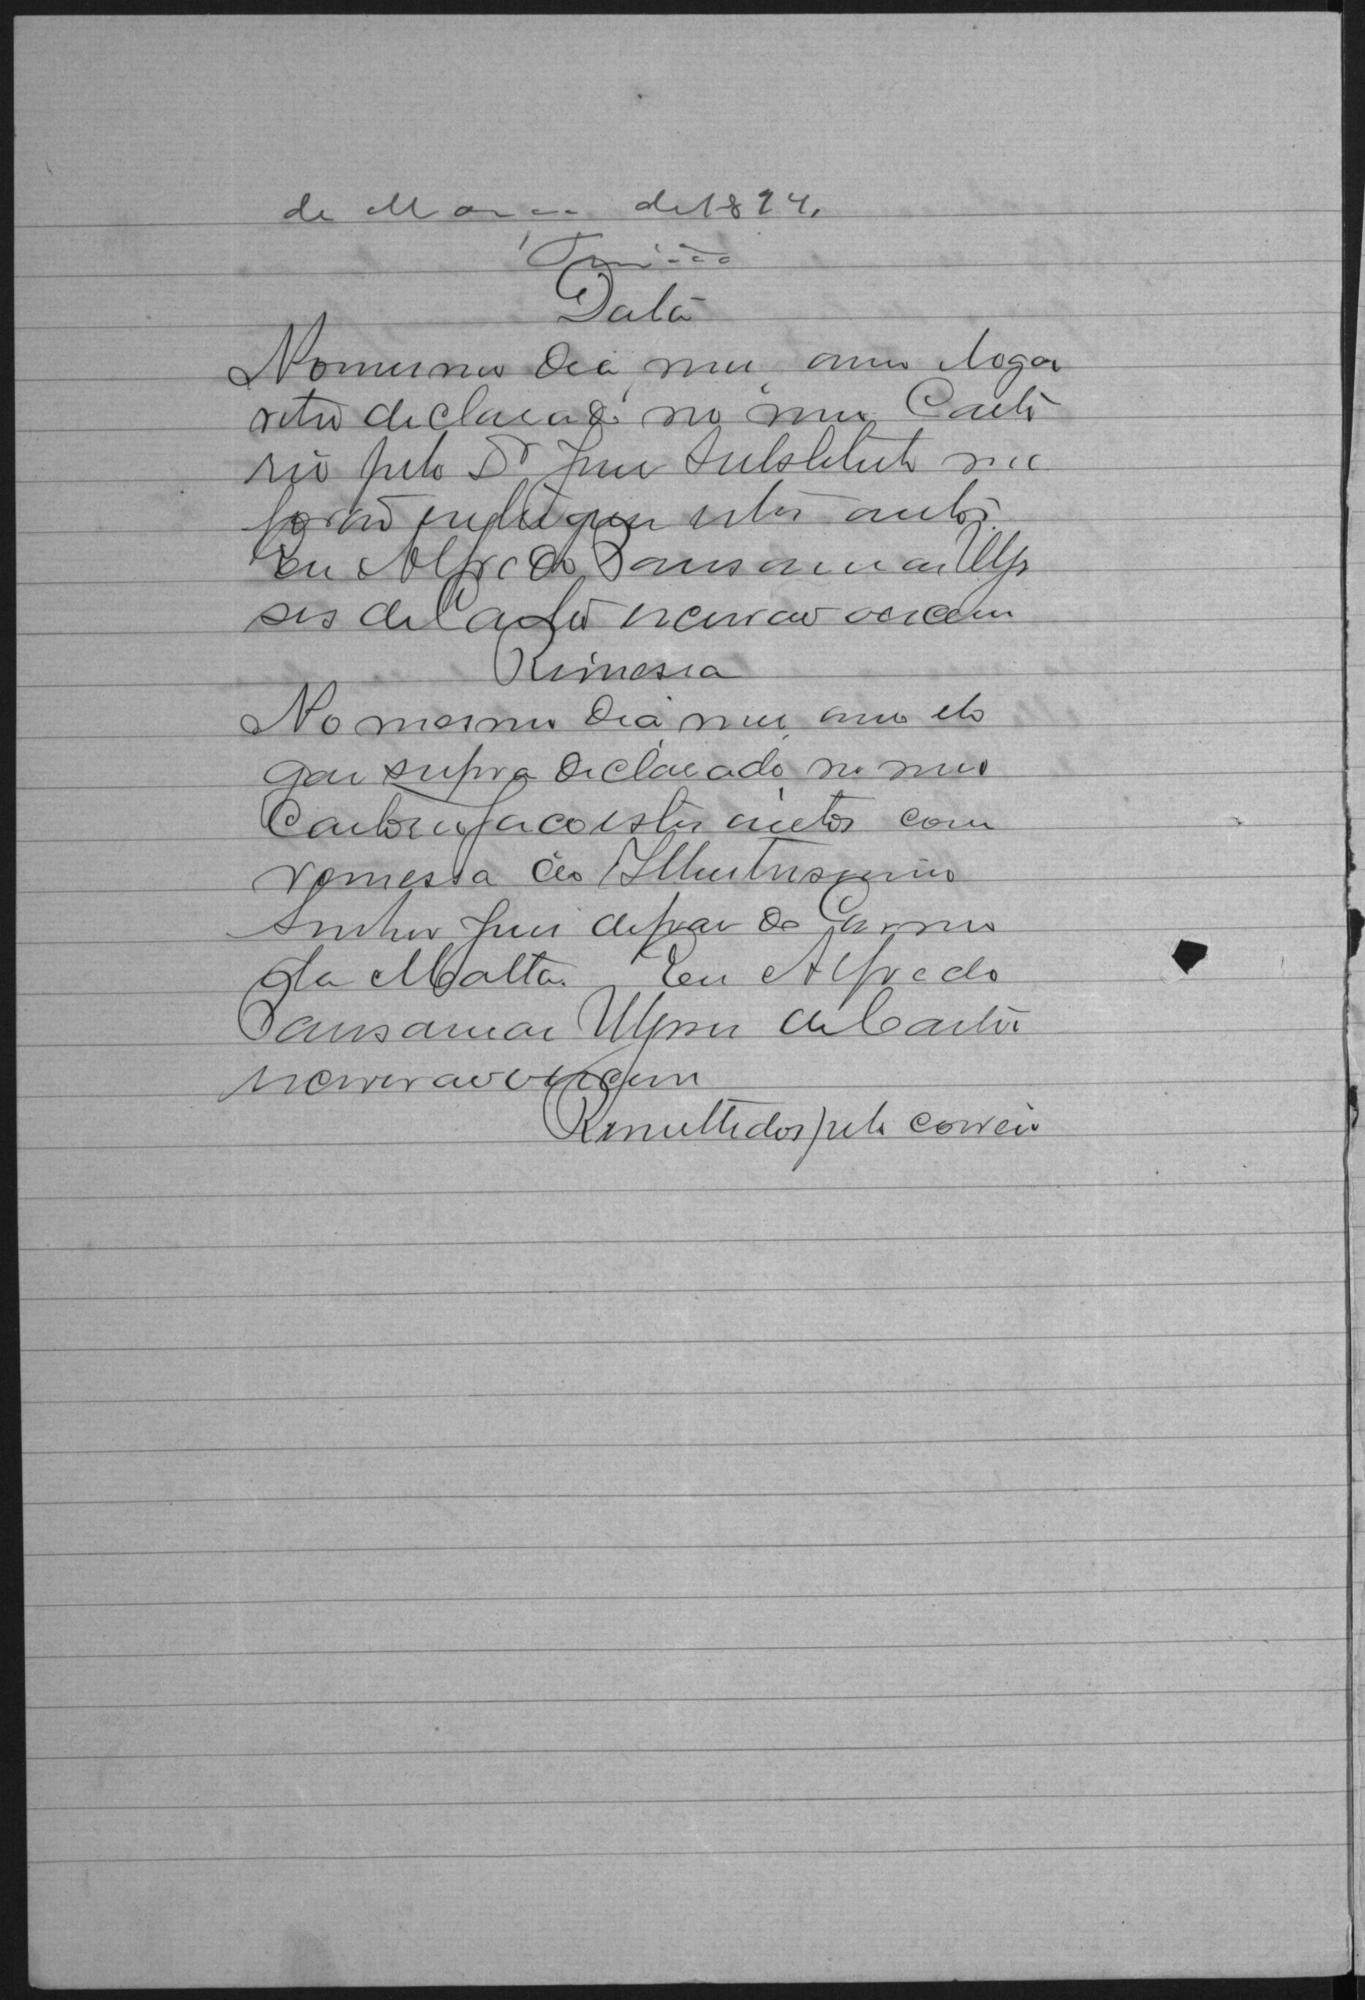 de Março de 1894.
Data
No mesmo dia, mez, anno e logar
retro declarado no meu Carto
rio pelo Dr Juiz Substituto me
forão entregues estes autos.
Eu Alfredo Pausamar Ulys
ses de Castro escrivão escrevi
Remessa
No mesmo dia, mez, anno e lo
gar supra declarado, no meu
Cartorio faço estes autos com
remessa ao Illustrissimo
Senhor Juiz de paz do Carmo
da Matta. Eu Alfredo
Pausamar Ulysses de Castro
escrivão o escrevi
Remettidos pelo correio